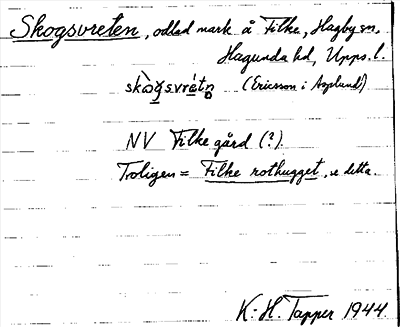 Skogsvreten, odlad mark å Filke, Hagby sn,
Hagunda hd, Upps. l.
skò̀gsvrétn̥ (Ericsson i Asplund)
NV Filke gård (?).
Troligen = Filke rothugget, se detta.
K.-H. Tapper 1944.